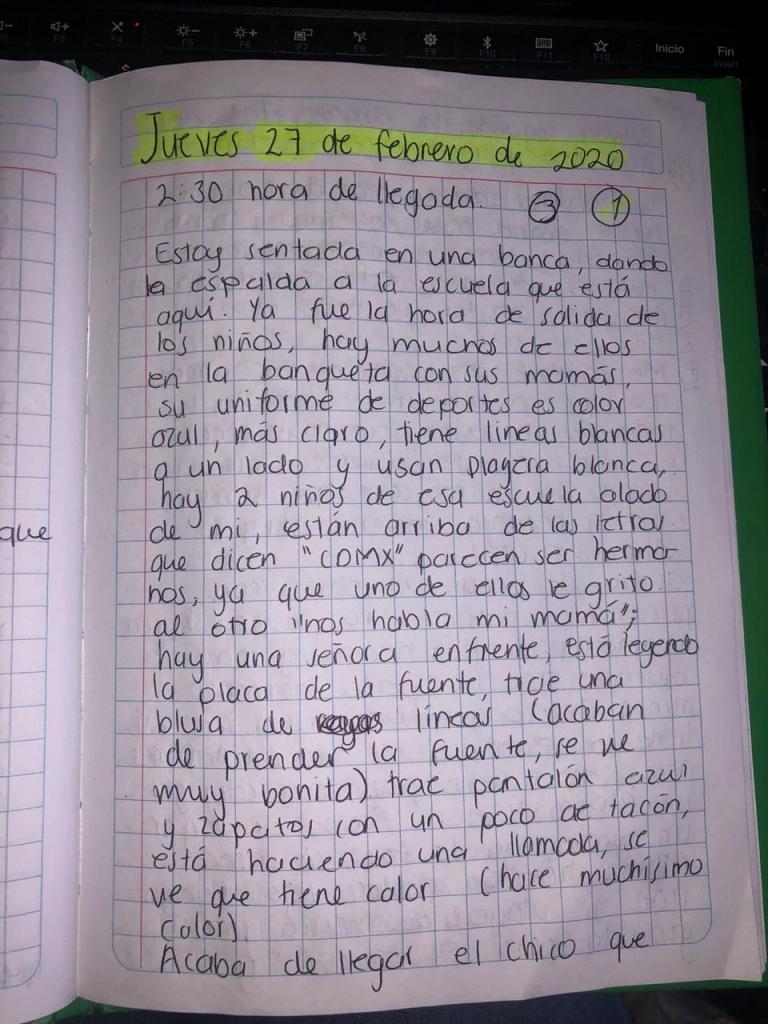 F3
F4
F5
F6
F7
F8
F9
F10
F11
F12
Inicio
Fin
Insert
que
Jueves 27 de febrero de 2020
2:30 hora de llegada. 3 1
Estoy sentada en una banca, dando
la espalda a la escuela que está
aquí. Ya fue la hora de salida de
los niños, hay muchos de ellos
en la banqueta con sus mamás,
su uniforme de deportes es color
azul, más claro, tiene lineas blancas
a un lado y usan playera blanca,
hay 2 niños de esa escuela alado
de mi, están arriba de las letras
que dicen "CDMX" parecen ser herma-
nos, ya que uno de ellos le grito
al otro "nos habla mi mamá";
hay una señora enfrente, está leyendo
la placa de la fuente, trae una
blusa de líneas (acaban
de prender la fuente, se ve
muy bonita) trae pantalón azul
y zapatos con un poco de tacón,
está haciendo una llamada, se
ve que tiene calor (hace muchísimo
calor).
Acaba de llegar el chico que